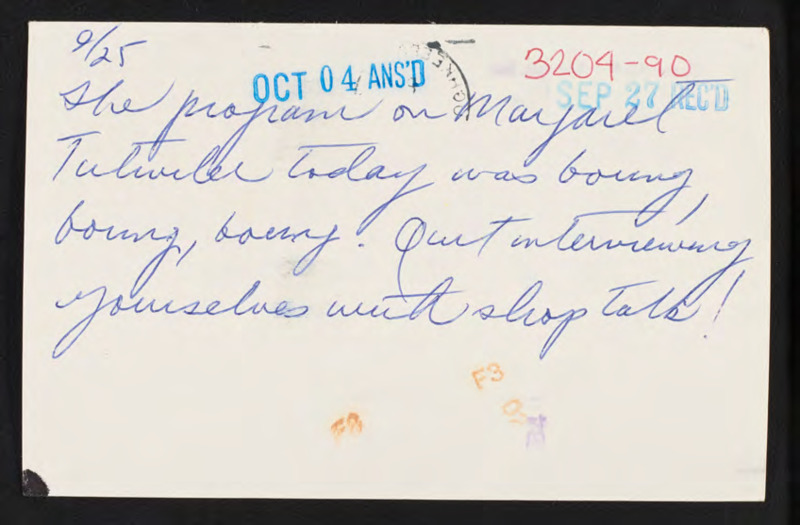 9/25
3204-90
OCT 04 ANS'D
SEP 27 REC'D
The program on Margaret
Tutwiler today was boring,
boring, boring. Quit interviewing
yourselves with shop talk!
F3
F3